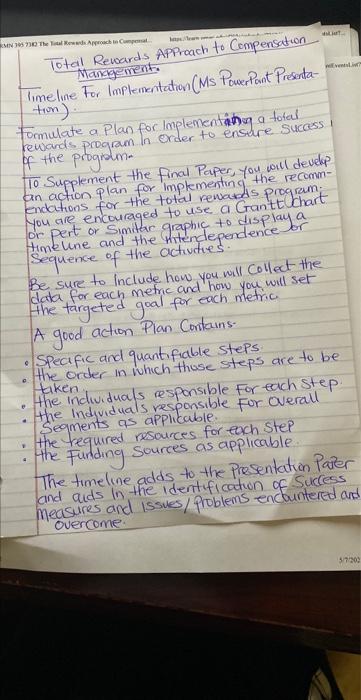 RMN 395 7382 The Total Rewards Approach to Compensat...
Total Rewards APProach to Compensation
Management.
Timeline For Implementation (Ms PowerPoint Presenta-
tion).
Formulate a Plan for Implementing a total
rewards program In order to ensure Success
of the program.
To Supplement the Final Paper, you will develop
an action plan for implementing the recomm-
endations for the total rewards program;
you are encouraged to use a Grantt Chart
or Pert or Similar graphic to display a
timeline and the interdependence or
Sequence of the activities.
Be sure to Include how you will Collect the
data for each metric and how you will set
the targeted goal for each metric.
A good action Plan Contains-
• Specific and quantifiable Steps.
• the order in which those steps are to be
taken.
• the Individuals responsible For each Step.
• the Individuals responsible For overall
Segments as applicable.
• the required resources for each step
• the Funding Sources as applicable.
The timeline adds to the Presentation Paper
and aids In the identification of Success
measures and Issues/Problems encountered and
overcome.
5/7/202